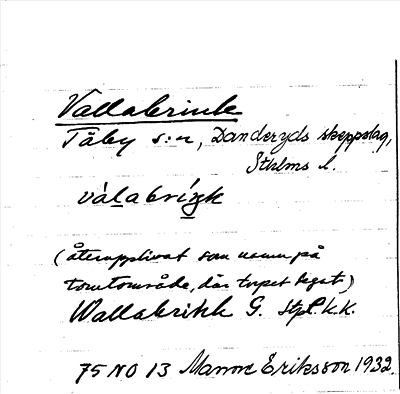 Vallabrink
Täby s:n, Danderyds skeppslag,
Sthlms l.
válabriŋk
(återupplivat som namn på
tomtområde, där torpet legat)
Wallabrink G. Stpl. k.k.
75 NO 13 Manne Eriksson 1932.